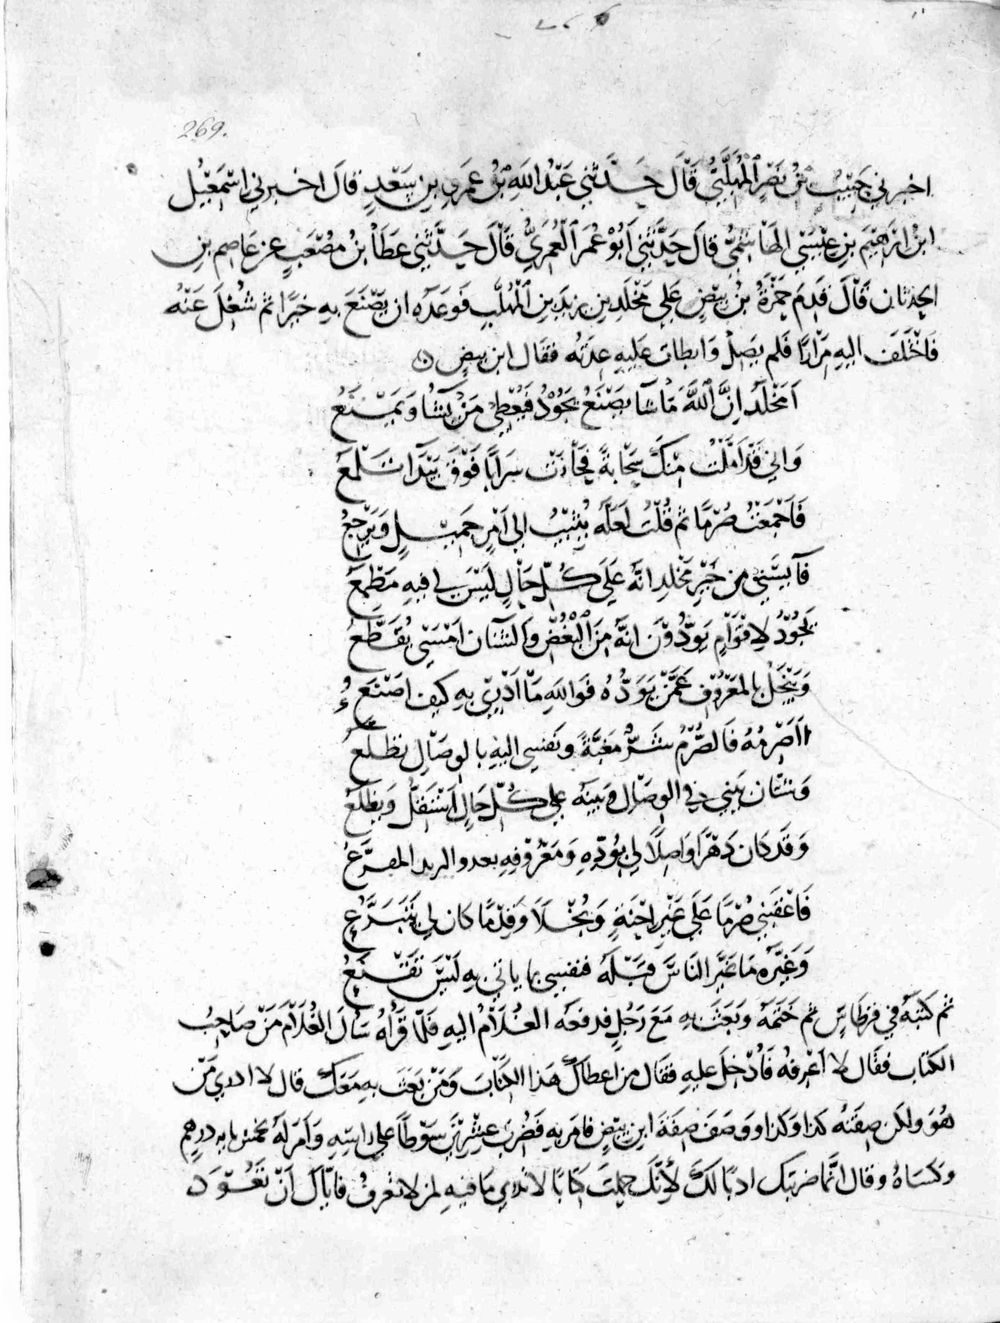 269.
اخبرني حَبيْبُ بْنُ نَصْرٍ المُهَلَّبيّ قَالَ حَدَّثَني عَبْدُ اللَهِ بْنُ عَمْرِو بنِ سَعْدٍ قالَ اخبرني اسْمَعيْل
ابنُ ابْرَهيْمَ بنِ عيْسَى الهَاشميُّ قالَ حَدَّثَني اَبُو عُمَرَ العُمَريُّ قَالَ حَدَّثَني عَطَاُ بنُ مُصْعَبٍ عَن عَاصِم بنِ
الحِدثان قَالَ قدِمَ حَمْزَةُ بْنُ بِيْضٍ عَلي مَخْلَدِ بنِ يزيْدَ بنِ المُهلَّبِ فوَعَدَه ان يصْنَعَ بهِ خَيرًا ثم شُغِلَ عَنْهُ
فَاخْتَلَفَ اليهِ مِرَارًا فَلم يصِلْ وَابطات عَليهِ عِدَتُه فقالَ ابن بيضٍ
اَمَخْلَدُ اِنَّ اللَّهَ مَا شَا يصْنَعُ يَجُوْدُ فَيُعْطي مَنْ يَشَا وَيمْنَعُ
وَاني قَدْ اَمَّلْتُ مِنْكَ سَحَابةً فَجاءَت سَرَابًا فَوْقَ بَيْدَآ تَلْمَعُ
فَاَجْمَعْتُ صُرْمًا ثم قُلتُ لعَلَّه يُثِيْبُ الى اَمْرٍ جَميْلٍ وَيَرْجعُ
فآيسَني من خَيْرِ مَخْلدِ انَّهُ عَلَى كُلِّ حَالٍ لَيْسَ لي فيهِ مَطْمَعُ
يَجُوْدُ لاِقْوَامٍ يَوَدُّوْنَ انَّهُ مِنَ البُغْضِ والشَنَآن اَمْسَى يُقَطَّعُ
وَيَبْخَلُ بالمَعْرُوْفِ عَمَّنْ يَوَدُّه فوَاللَهِ مَا اَدْري بهِ كيفَ اصْنَعُ
ااَصْرِمُهُ فَالصُّرْمُ شَرٌّ مَغَبَّةً ونَفسِي اليْهِ بالوِصَالِ تطْلَعُ
وَشتَّان بَيْني في الوِصَالِ وَبينَه عَلى كُلِّ حَالٍ اَسْتَقِلُّ وَيظْلَعُ
وَقَد كان دَهْرًا واصِلًا لي بوُدِّهِ وَمَعْرُوْفهِ
فَاَعْقَبَني صُرْمًا عَلَى غَيْرِ اِحْنةٍ وَبُخْلًا وَقِدْمًا كان لي يتَبَرَّعُ
وَغَيَّرَه مَا غَيَّرَ الناسَ قبْلَهُ فنفسِي بما ياتي بهِ لَيْسَ تقْنَعُ
ثم كتبَهُ في قِرْطاسٍ ثم خَتَمَهُ وبَعَثَ بهِ مَعَ رَجُلٍ فدفعَه الغُلَامُ اليهِ فلَمّا قَرَاهُ سَاَلَ الغُلَامَ مَنْ صَاحِبُ
الكتاب فقَالَ لا اَعْرِفُه فَاُدْخِلَ عليهِ فقالَ مَن اَعطَاكَ هَذا الكتَابَ وَمَنْ بَعَثَ بهِ مَعَكَ قالَ لا ادري مَنْ
هُوَ ولكن صِفَتُه كذا وكذا ووَصَفَ صِفَةَ ابن بيْضٍ فامَر بهِ فضُرِبَ عِشْرِيْنَ سَوْطًا على راسِهِ وَاَمرَ لهُ بخمس مايه درهمٍ
وكسَاهُ وقال انَّما ضربتكَ ادبًا لكَ لِأنّك حملتَ كتابًا لا تدري مَا فيهِ لمن لا تعْرِفُ فايَّاكَ اَنْ تَعُوْدَ